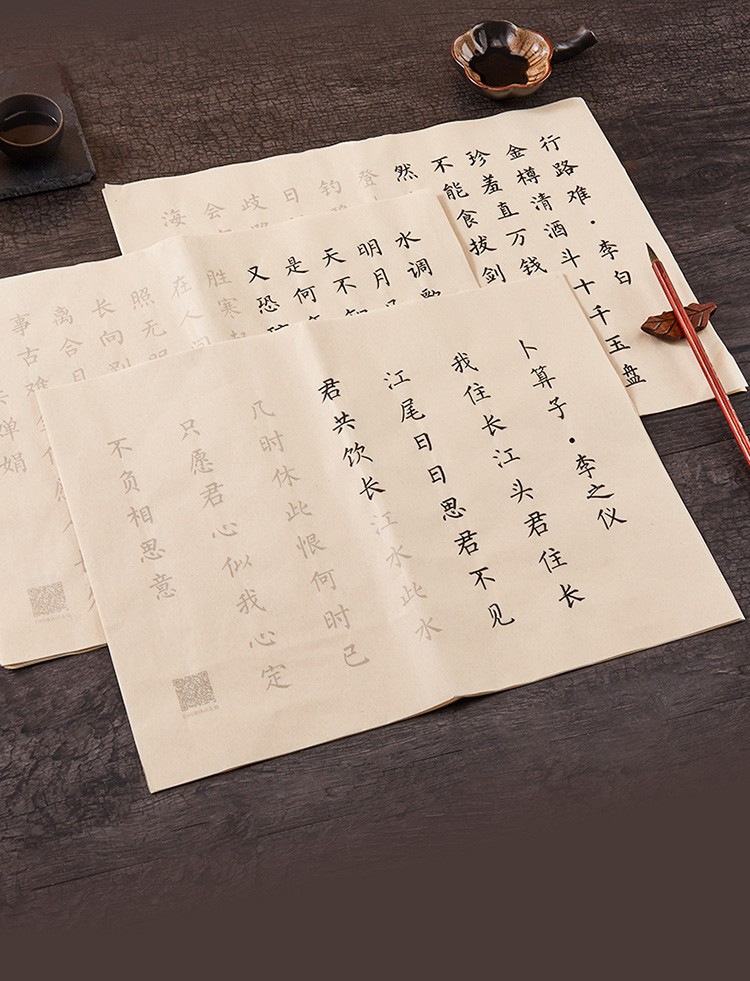 行路难·李白
金樽清酒斗十千玉盘
珍羞直万钱
不能食拔剑
然
登
钓
日
歧路
会
海
水调歌
明月
天不知
是何
又恐
胜寒
在人间
照无眠
长向别
离合
事古难
婵娟
卜算子·李之仪
我住长江头君住长
江尾日日思君不见
君共饮长江水此水
几时休此恨何时已
只愿君心似我心定
不负相思意